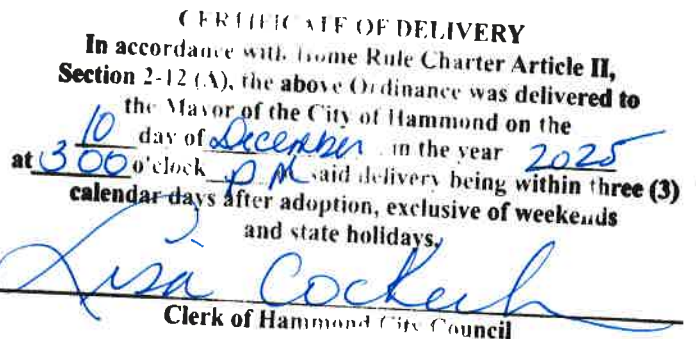 CERTIFICATE OF DELIVERY
In accordance with Home Rule Charter Article II,
Section 2-12 (A), the above Ordinance was delivered to
the Mayor of the City of Hammond on the
10 day of December in the year 2025
at 3 00 o'clock P M said delivery being within three (3)
calendar days after adoption, exclusive of weekends
and state holidays.
Lisa
Clerk of Hammond City Council